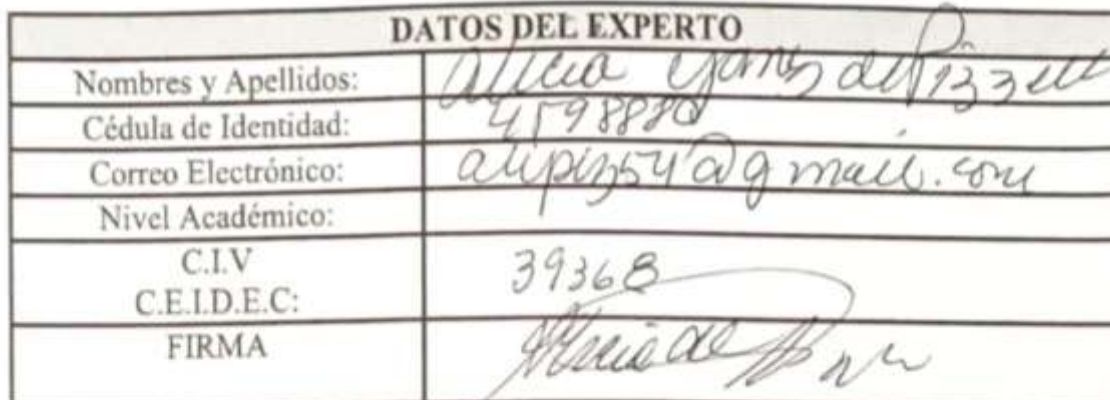 DATOS DEL EXPERTO
Nombres y Apellidos: Alicia Yanes de Pizzella
Cédula de Identidad: 4598880
Correo Electrónico: alipiz54@gmail.com
Nivel Académico:
C.I.V 39368
C.E.I.D.E.C:
FIRMA Alicia de